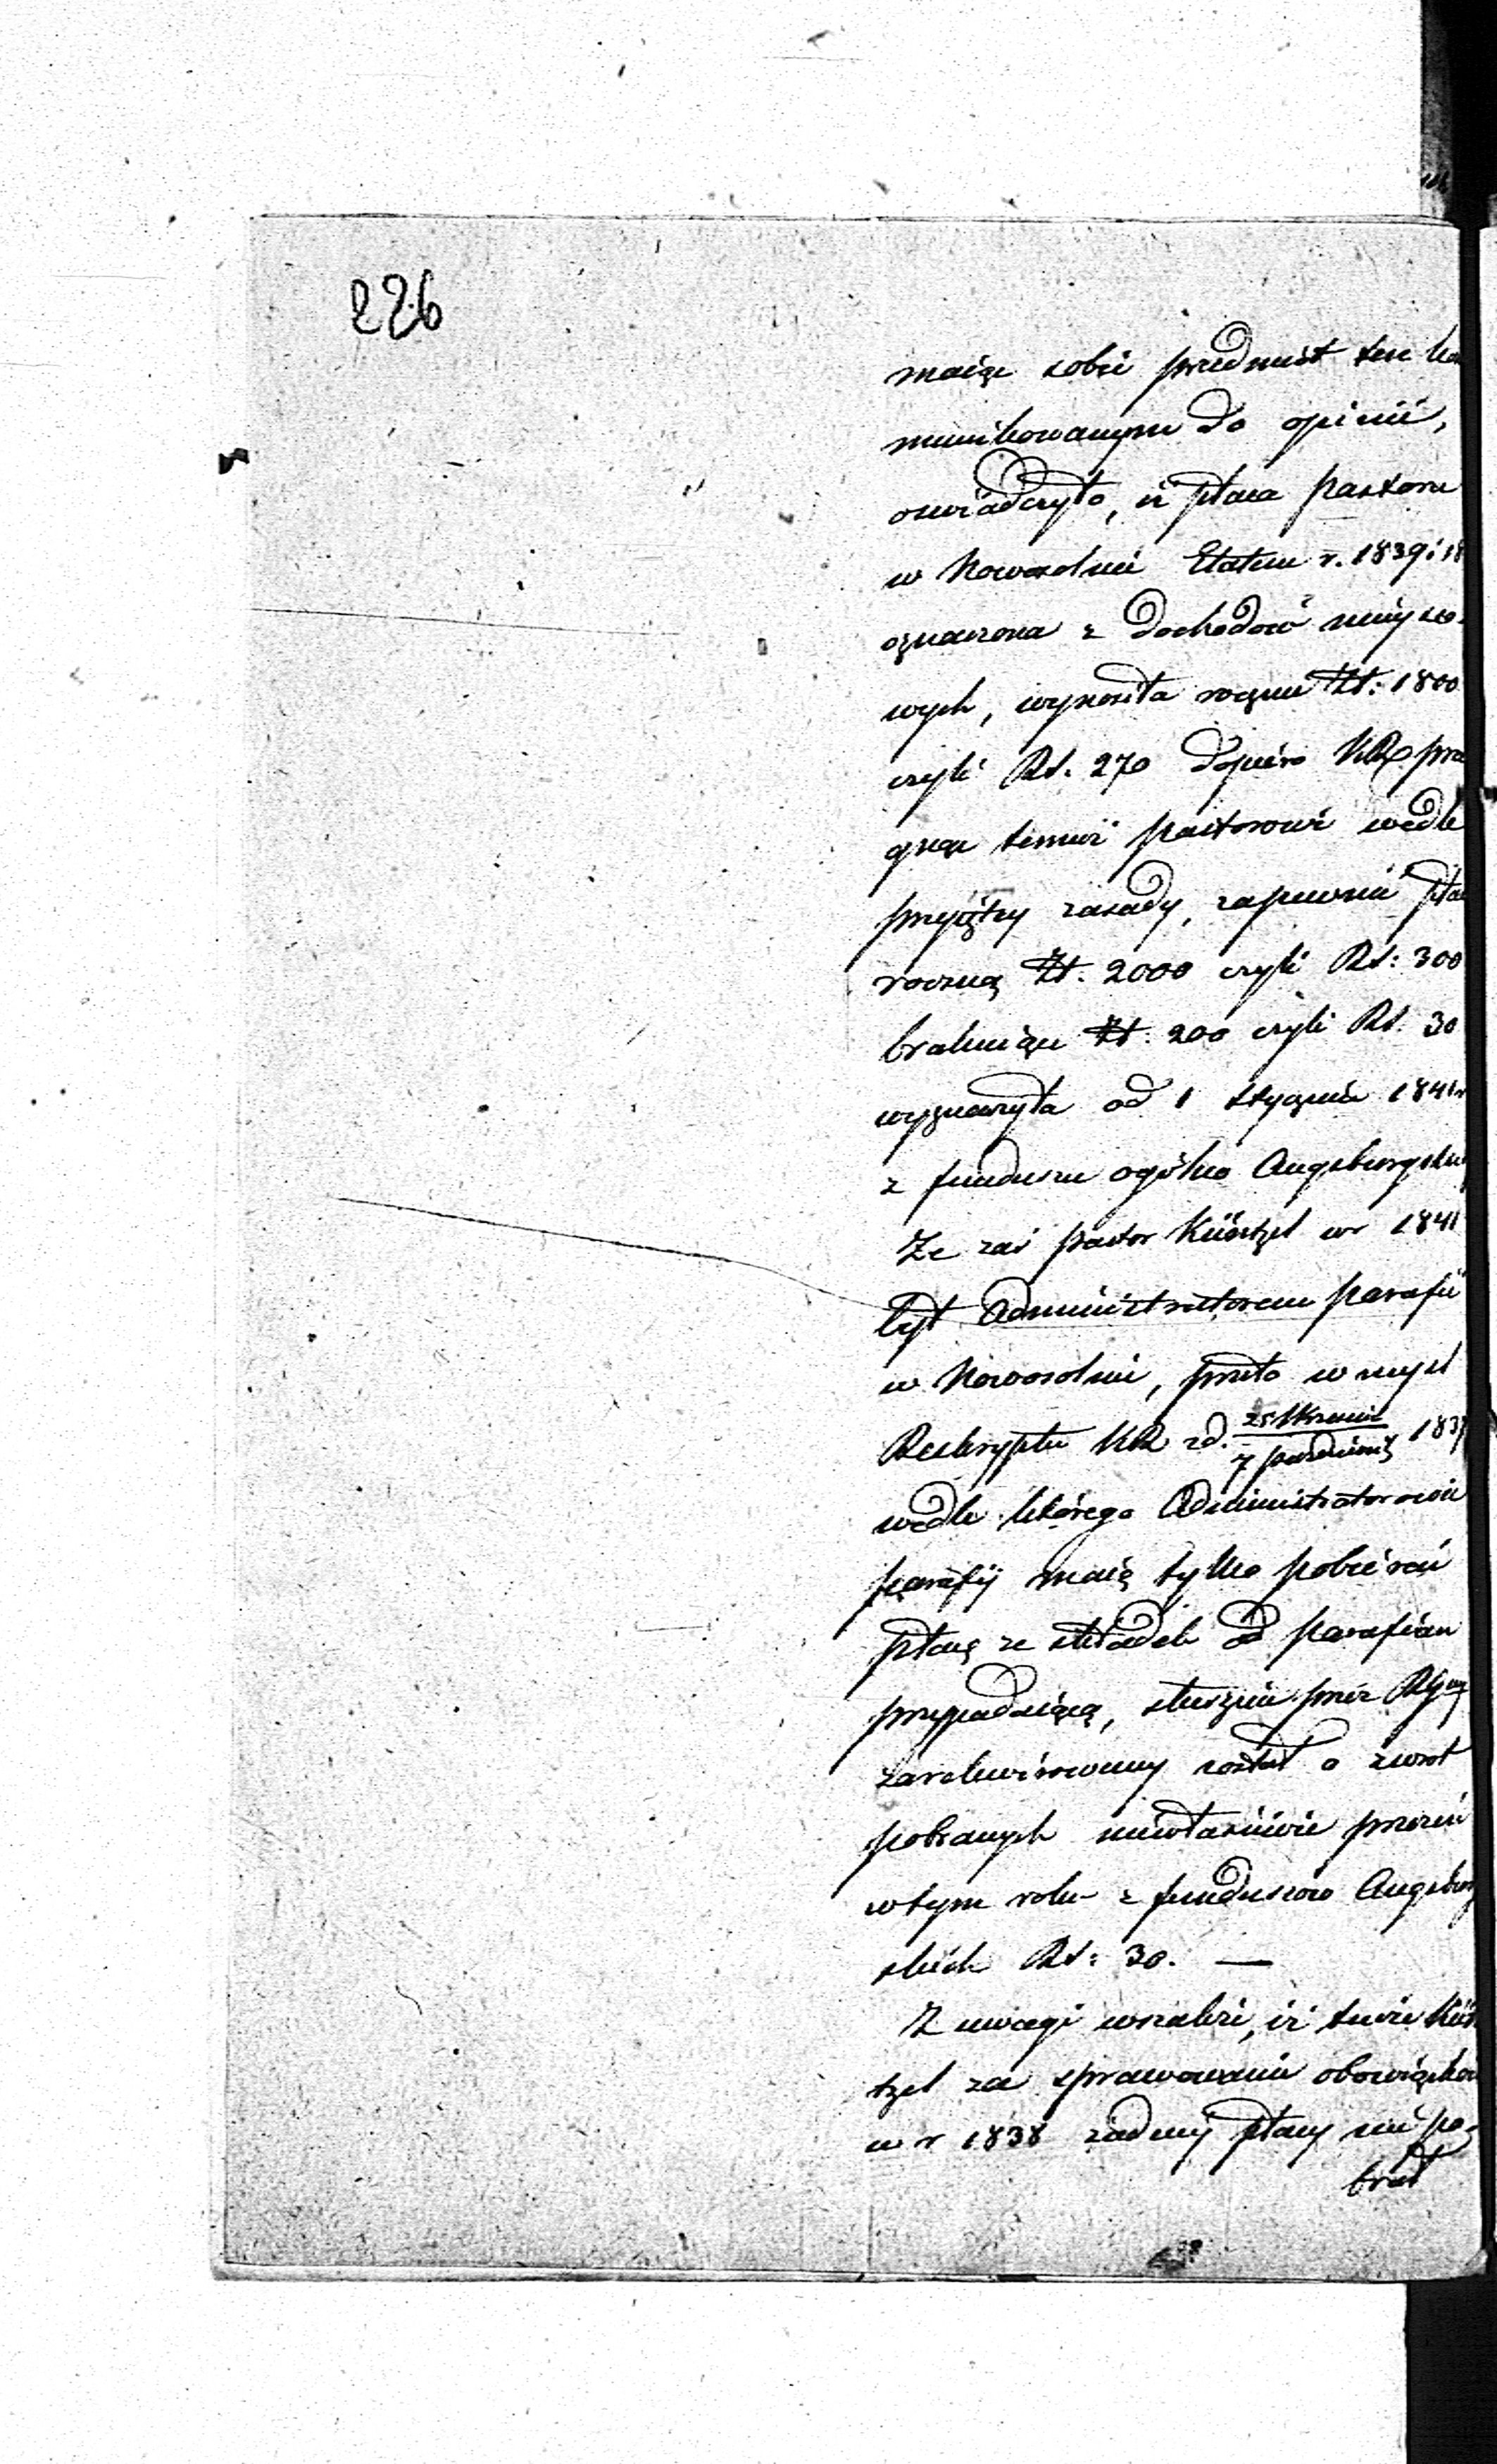 226
maiąc sobie przedmiot ten ko
munikowanym do opinii,
oswiadczyło, iż płaca pastora
w Nowosolnie Etatem r. 1839 i 18
oznaczona z dochodów mieysco-
wych, wynosiła rocznie Zł: 1800
czyli Rs. 270 dopiero KR pra
gnąc temuż pastorowi wedle
przyiętey zasady, zapewnić płac
roczną Zł. 2000 czyli Rs: 300
brakuiące Zł. 200 czyli Rs. 30
wyznaczyła od 1 stycznia 1841 r
z funduszu ogólno Augsburgskie
Że zaś pastor Küntzel w r 1841
był Administratorem parafii
w Nowosolnie, przeto w mysl
Reskryptu KR z d. 25 Września / 7 pazdziernik 1837
wedle którego Administratorowie
parafij maią tylko pobierać
płacę ze składek od parafian
przypadaiącą, słusznie przez RG
zarekwirowany został o zwrot
pobranych niewłaściwie przezeń
w tym roku z funduszów Augsburg
skich Rs: 30. —
Z uwagi wszakże, iż tenże Kün
tzel za sprawowanie obowiązków
w r 1838 żadney płacy nie po-
brał